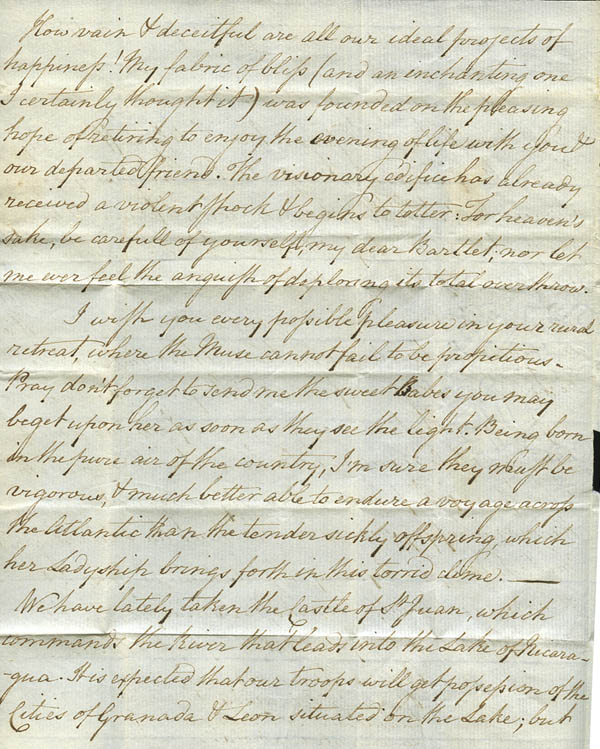 How vain & deceitful are all our ideal projects of
happiness! My fabric of bliss (and an inchanting one
I certainly thought it) was founded on the pleasing
hope of retiring to enjoy the evening of life with you &
our departed friend. The visionary edifice has already
received a violent shock & begins to totter: For heaven's
sake, be carefull of yourself, my dear Bartlet; nor let
me ever feel the anguish of deploring its total overthrow.
I wish you every possible pleasure in your rural
retreat, where the Muse cannot fail to be propitious.
Pray dont forget to send me the sweet Babes you may
beget upon her as soon as they see the light. Being born
in the pure air of the country, I'm sure they must be
vigorous, & much better able to endure a voyage across
the Atlantic than the tender sickly offspring, which
her Ladyship brings forth in this torrid clime. —
We have lately taken the Castle of St. Juan, which
commands the River that leads into the Lake of Nicara-
-gua. It is expected that our troops will get possession of the
Cities of Granada & Leon situated on the Lake; but